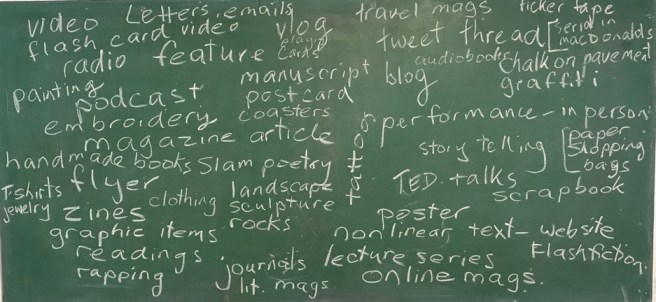 video
Letters, emails
travel mags
ticker tape
flash card video
vlog
playing cards
tweet thread
[serial in macDonalds
radio
feature
audiobooks
Chalk on pavement
manuscript
blog
graffiti
painting
podcast
postcard
embroidery
coasters
tattoo
performance - in person
magazine article
story telling
[paper shopping bags
handmade books
Slam poetry
T-shirts
flyer
landscape sculpture
TED-talks
scrapbook
jewelry
zines
clothing
rocks
poster
graphic items
nonlinear text - website
readings
journals
lecture series
Flashfiction
rapping
lit. mags
online mags.